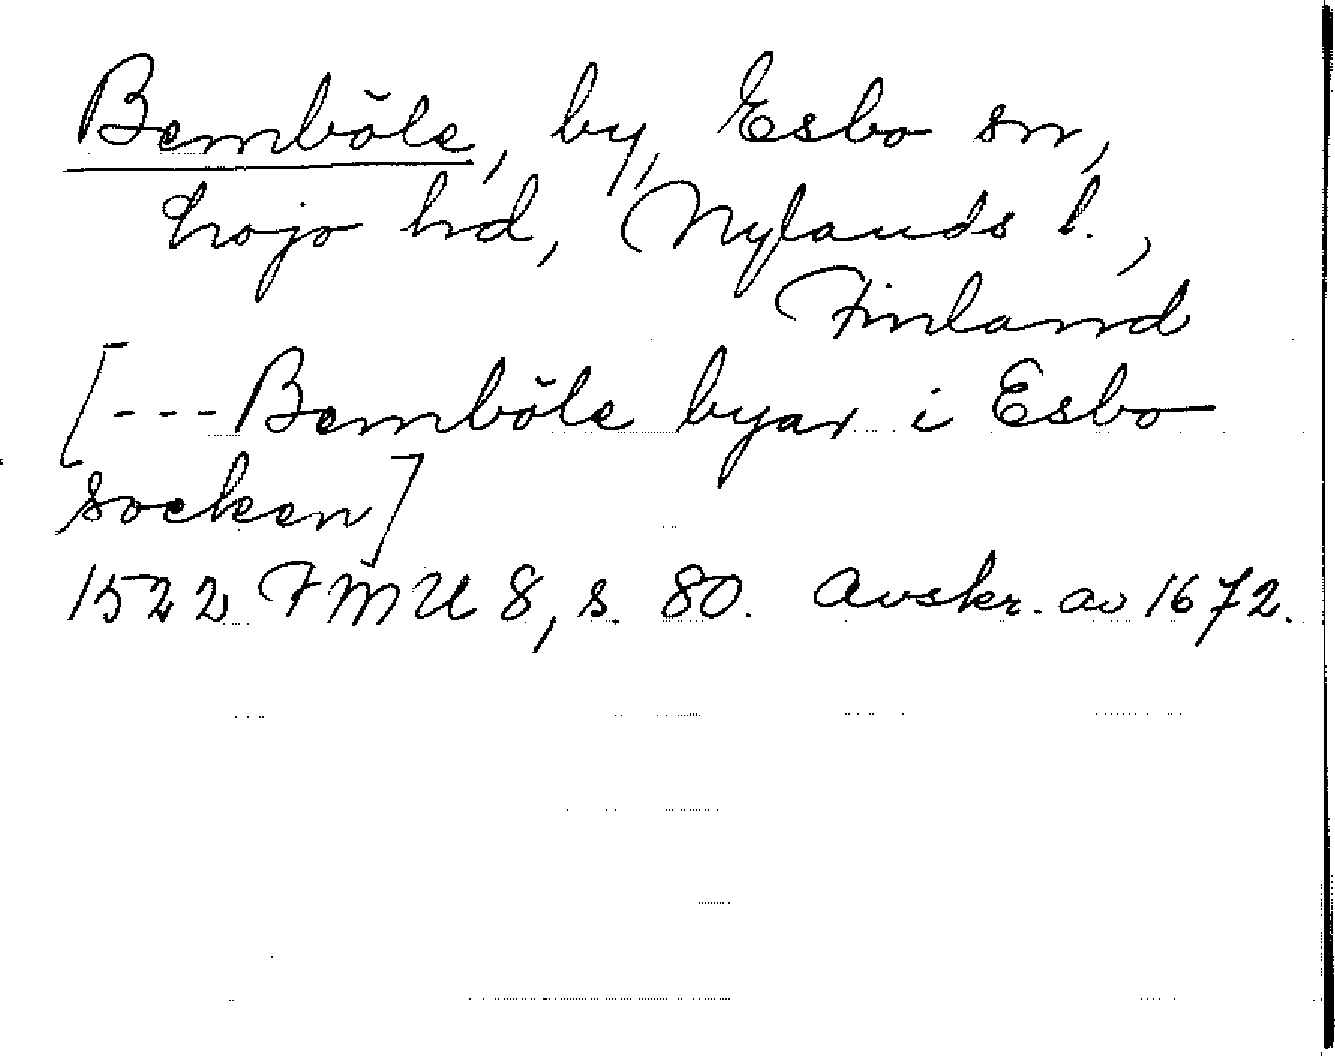 Bemböle, by, Esbo sn,
Lojo hd, Nylands l.,
Finland
[--- Bemböle byar i Esbo
socken]
1522 FMU 8, s. 80. Avskr. av 1672.